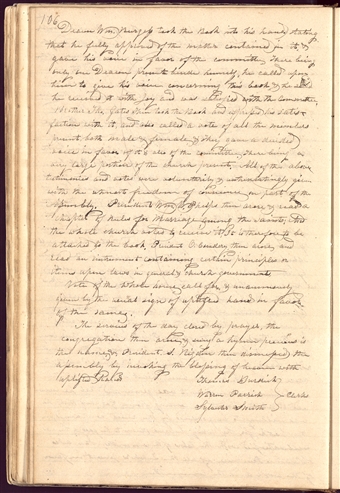 106
Deacon Wm Burgess took the Book into his hand, stating
that he fully approved of the matter contained in it &
gave his voice in favor of the committee, there being
only one Deacon present besides himself, he called upon
him to give his voice concerning this book, & he said
he received it with joy and was satisfied with the committee.
Brother Thos. Gates then took the Book and expressed his satis-
faction with it, and also called a vote of all the members
present, both male & female, & They gave a decided
voice in favor of it & also of the committee. There being a
very large portion of the church present, All of the above
testimonies and votes were voluntarily & unhesitatingly given
with the utmost freedom of on part of the
Assembly. President W. W. Phelps then arose & read a
chapter of Rules for Marriage among the saints, And
the whole church voted to receive it, It is therefore to be
attached to the book, President O Cowdery then arose, and
read an instrument containing certain principles or
items upon laws in general & church governments
Vote of the whole house called for, & unanimously
given by the usual sign of uplifted hand in favor
of the same,
The services of the day closed by prayer, the
congregation then arose, & sung a hymn previous is
that & President S. Rigdon then dismissed the
assembly by invoking the blessing of heaven with
uplifted hands
Thomas Burdick
Warren Parrish } Clerks
Sylvester Smith